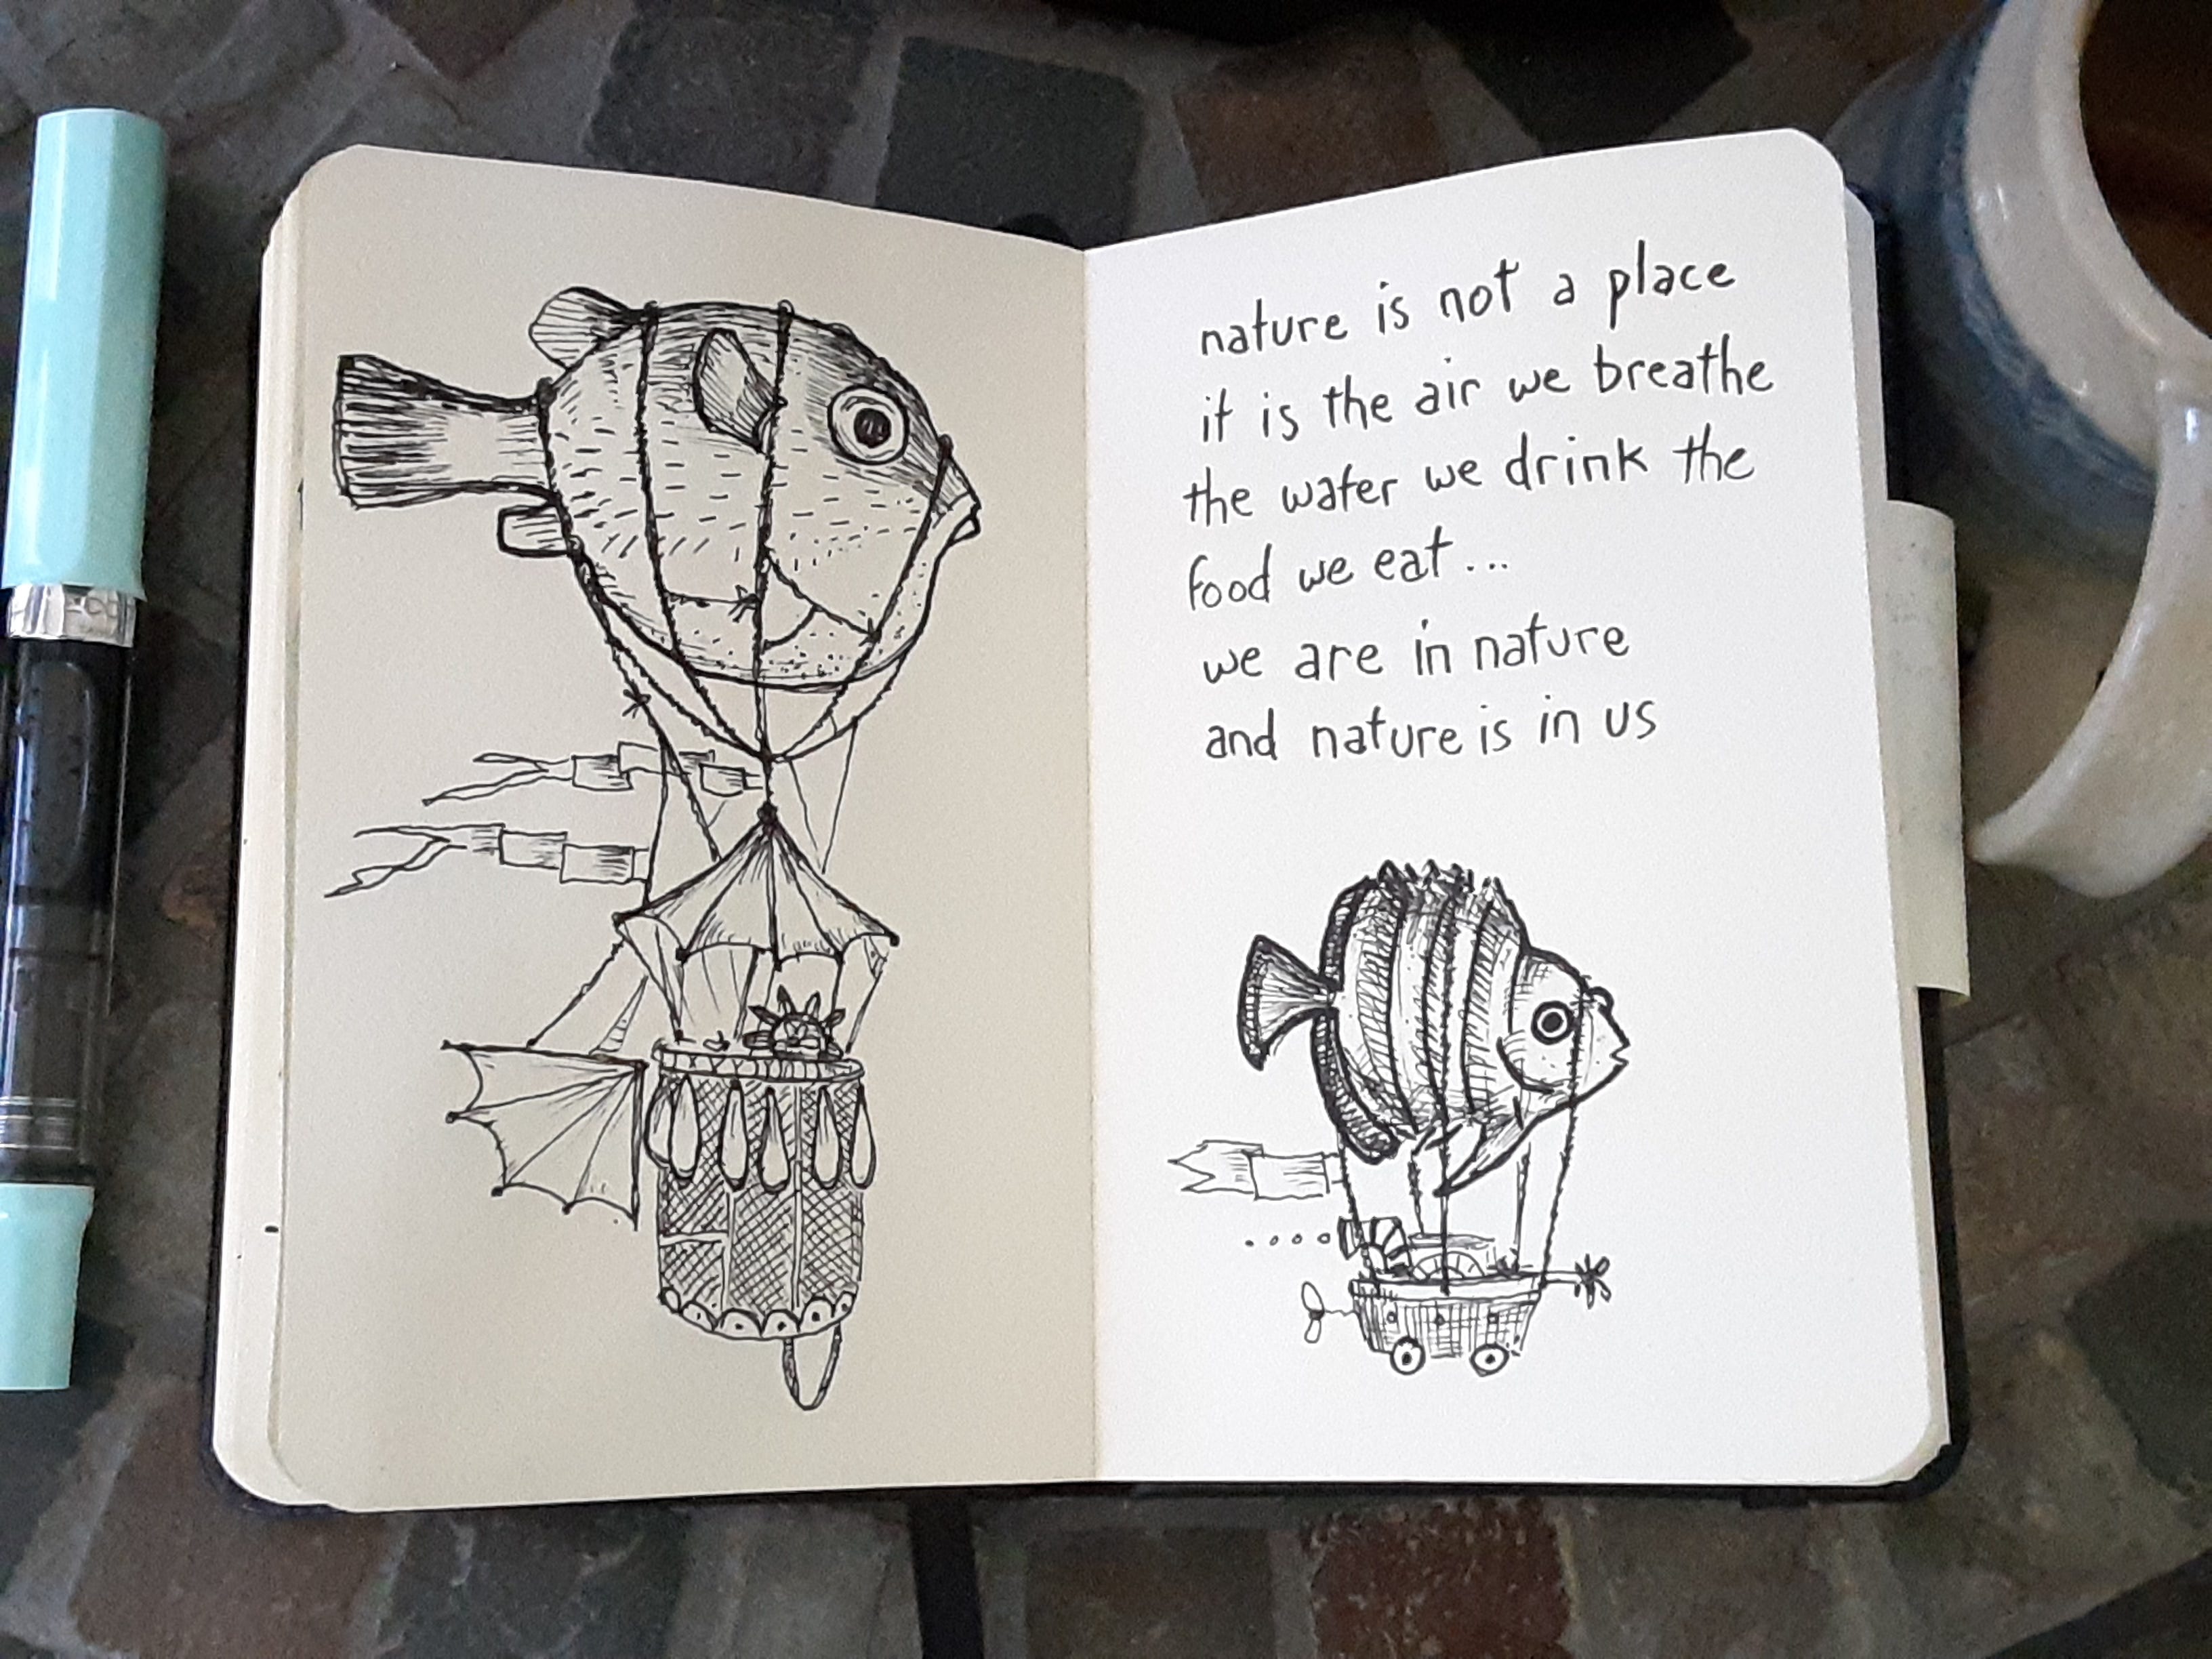 nature is not a place
it is the air we breathe
the water we drink the
food we eat...
we are in nature
and nature is in us